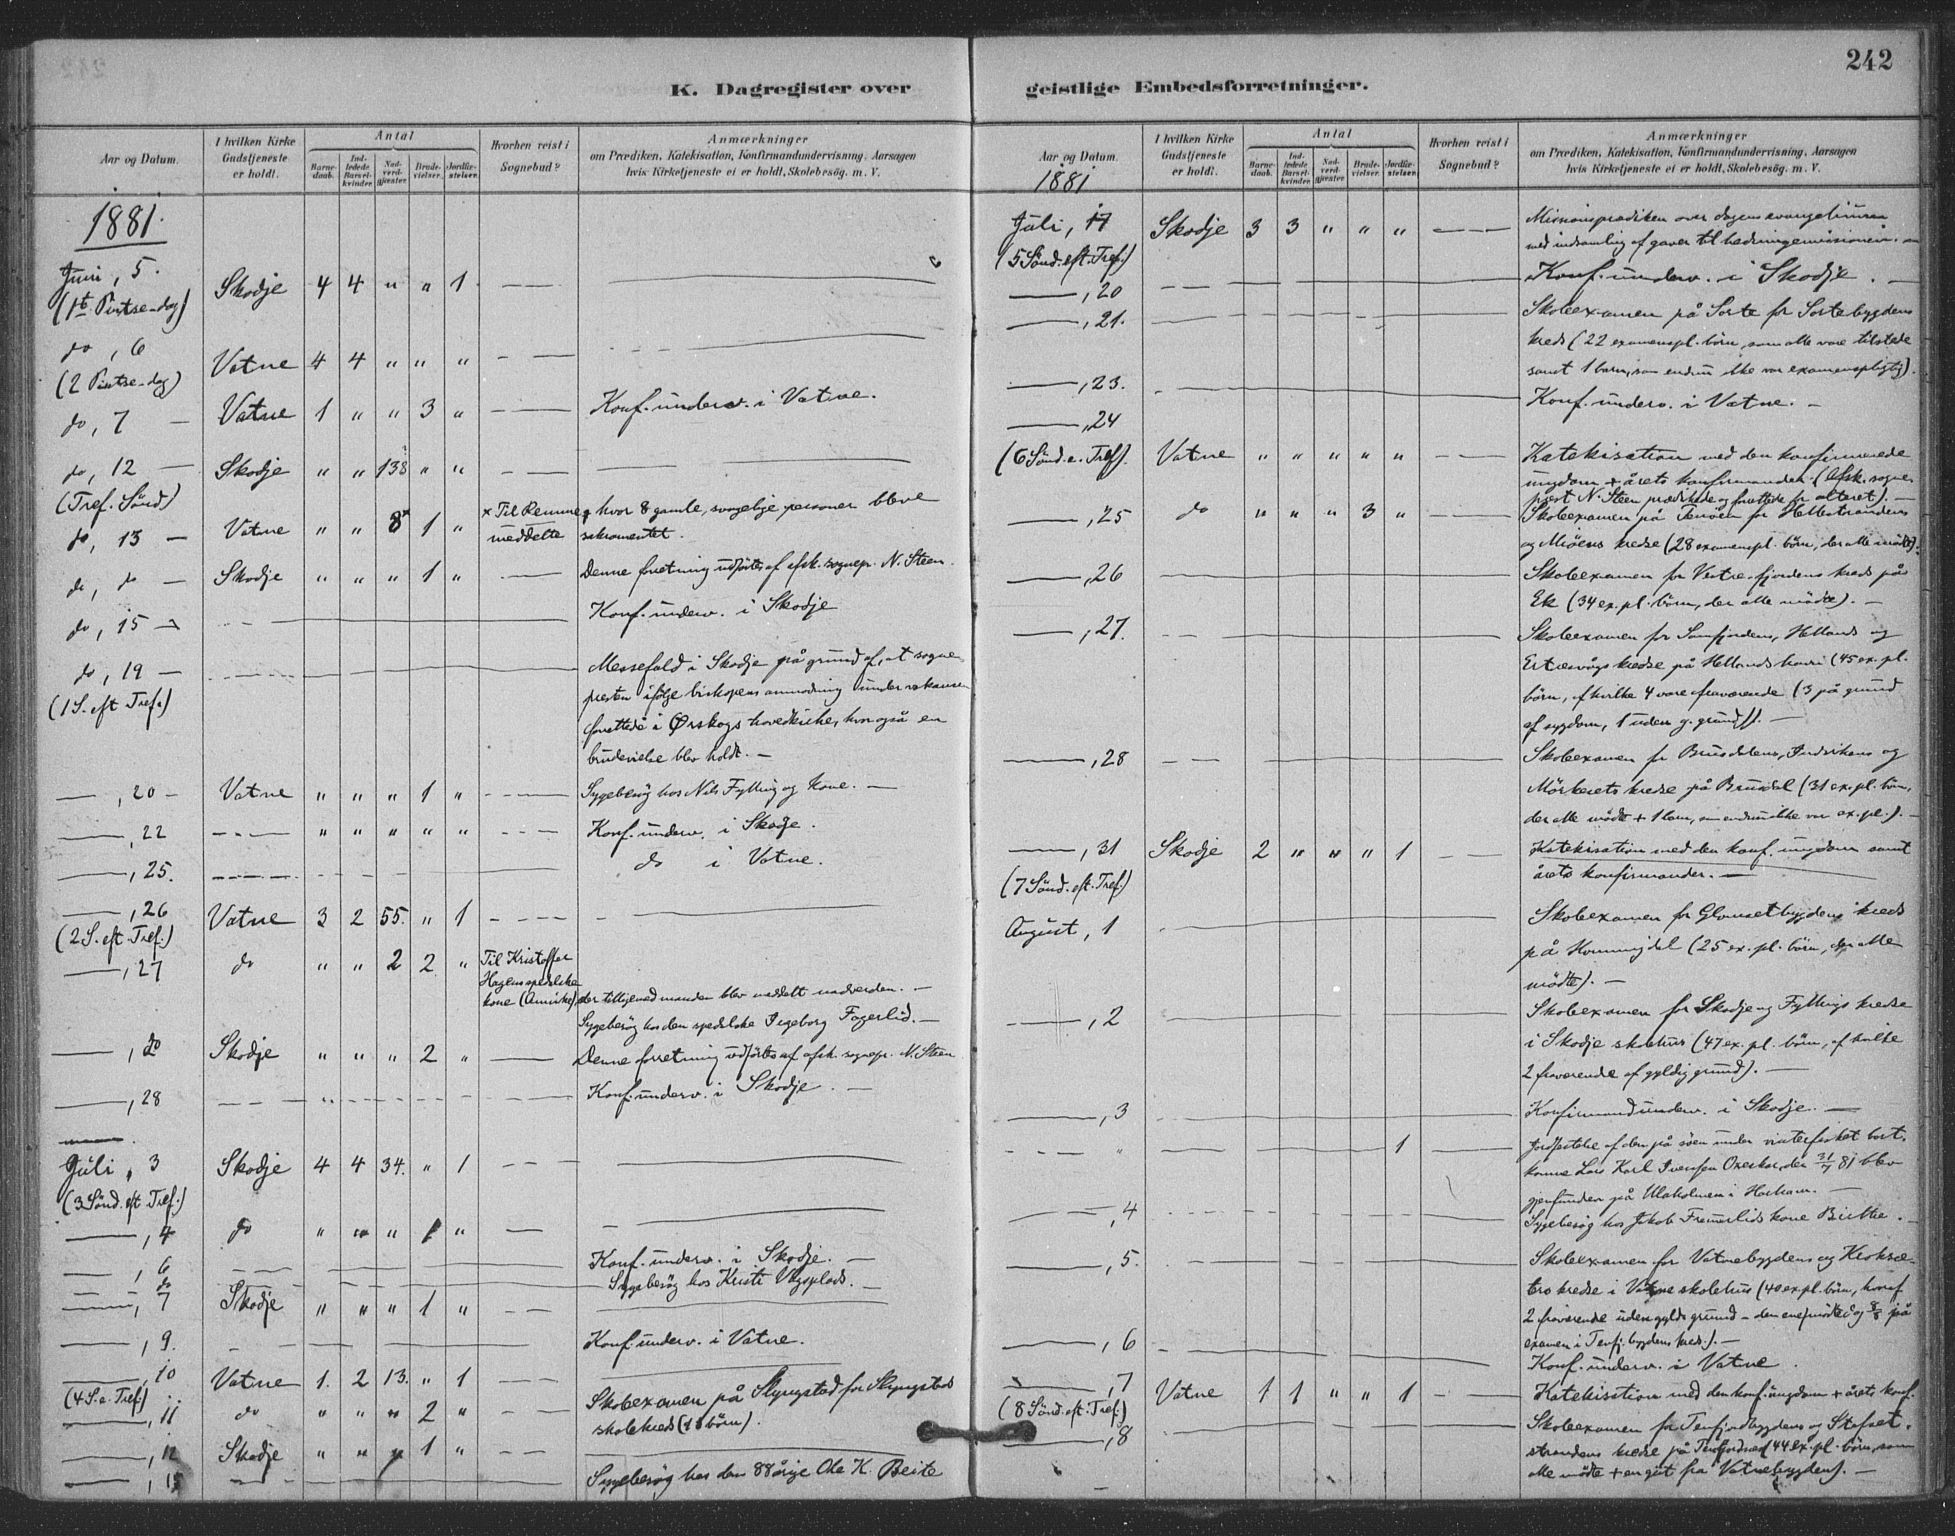 242
K. Dagregister over
geistlige Embedsforretninger.
Aar og Datum.
I hvilken Kirke Gudstjeneste er holdt.
Antal
Barnedaab.
Indledede Barselkvinder.
Nadverdgjester.
Brudevielser.
Jordfæstelser.
Hvorhen reist i Sognebud?
Anmærkninger
om Prædiken, Katekisation, Konfirmandundervisning, Aarsagen
hvis Kirketjeneste ei er holdt, Skolebesøg. m. V.
1881.
Juni, 5. Skodje 4 4 " " 1
(1ste Pintse-dag)
do, 6 Vatne 4 4 " " "
(2 Pintse-dag)
do, 7 — Vatne 1 " " 3 " Konf. underv. i Vatne.
do, 12 — Skodje " " 138 " "
(Tref. Sönd)
do, 13 — Vatne " " 8x 1 " x Til Remme, hvor 8 gamle, svagelige personer bleve
meddelte sakramentet.
do, do — Skodje " " " 1 " Denne forretning udførtes af afsk. sognepr. N. Steen.
do, 15 — Konf. underv. i Skodje
do, 19 — Messefald i Skodje på grund af, at sogne-
(1 S. eft. Tref.) presten ifølge biskopens anmodning under vakansen
forrettede i Ørskogs hovedkirke, hvor også en
brudevielse blev holdt. —
—, 20 — Vatne " " " 1 " Sygebesög hos Nils Fylling og kone. —
—, 22 " " " " " Konf. underv. i Skodje.
—, 25. do i Vatne.
—, 26 Vatne 3 2 55. " 1
(2 S. eft. Tref.)
—, 27 do " " 2 2 " Til Kristoffer
Hagens spedalske
kone (Anvike), der tilligemed manden blev meddelt nadverden. —
Sygebesög hos den spedalske Ingeborg Fagerlid. —
—, do Skodje " " " 2 " Denne forretning udförtes af afsk. sognepr. N. Steen
—, 28 Konf. underv. i Skodje. —
Juli, 3 Skodje 4 4 34. " 1
(3 Sönd. eft Tref.)
—, 4 do " " " 1 "
—, 6 Konf. underv. i Skodje. —
—, do Sygebesög hos Kristi Vågsplads. —
—, 7 Skodje " " " 1 "
—, 9. Konf. underv. i Vatne.
—, 10 Vatne 1. 2 13. " 1
(4 S. e. Tref.)
—, 11 do " " " 2 " Skoleexamen på Slyngstad for Slyngstads
skolekreds (18 börn).
—, 12 Skodje " " " 1 "
—, 13 Sygebesög hos den 88årige Ole K. Beite
Aar og Datum.
I hvilken Kirke Gudstjeneste er holdt.
Antal
Barnedaab.
Indledede Barselkvinder.
Nadverdgjester.
Brudevielser.
Jordfæstelser.
Hvorhen reist i Sognebud?
Anmærkninger
om Prædiken, Katekisation, Konfirmandundervisning, Aarsagen
hvis Kirketjeneste ei er holdt, Skolebesøg. m. V.
1881
Juli, 17 Skodje 3 3 " " " Missionsprædiken over dagens evangelium
(5 Sönd. eft. Tref.) med indsamling af gaver til hedningemissionen. —
—, 20 Konf. underv. i Skodje. —
—, 21. Skoleexamen på Sorte for Sortebygdens
kreds (22 examenspl. börn, som alle vare tilstede
samt 1 barn, som endnu ikke var examenspligtig).
—, 23. Konf. underv. i Vatne. —
—, 24
(6 Sönd. e. Tref). Vatne " " " " " Katekisation med den konfirmerede
ungdom + årets konfirmander. (Afsk. sogne-
prest N. Steen prædikede og forrettede for alteret). —
—, 25 do " " " 3 " Skoleexamen på Tenöen for Hellestrandens
og Miöens kredse (28 examenspl. börn, der alle mödte).
—, 26 Skoleexamen for Vestrefjordens kreds på
Ek (34 ex. pl. börn, der alle mödte). —
—, 27. Skoleexamen for Samfjorden, Hellands og
kredse på Hellandshavn (45 ex. pl.
börn, af hvilke 4 vare fraværende (3 på grund
af sygdom, 1 uden g. grund)). —
—, 28 Skoleexamen for Brusdalens, Indvikens og
Mörkerets kredse på Brusdal (31 ex. pl. börn,
der alle mödte + 1 barn, som endnu ikke var ex. pl.). —
—, 31 Skodje 2 " " " 1 Katekisation med den konf. ungdom samt
(7 Sönd. eft. Tref.) årets konfirmander. —
August, 1 Skoleexamen for Glomsetbygdens kreds
på (25 ex. pl. börn, der alle
mödte). —
—, 2 Skoleexamen for Skodje og Fyllings kredse
i Skodje skolehus (47 ex. pl. börn, af hvilke
2 fraværende af gyldig grund). —
—, 3 Konfirmandunderv. i Skodje. —
" 1 Jordfæstelse af den på söen under vinterfisket bort-
komne Lars Karl Iversen Oxeskar, der 31/7 81 blev
gjenfunden på Ulaholmen i Harham. —
—, 4 Sygebesög hos Jakob Fremerlids kone Birthe. —
—, 5. Skoleexamen for Vatnebygdens og Kroksæ-
ters kredse i Vatne skolehus (40 ex. pl. börn, hvoraf
2 fraværende uden gyldig grund – den ene mödte dog 8/8 på
examen i Tenfj. bygdens kreds). —
—, 6 Konf. underv. i Vatne.
—, 7 Vatne 1 1 " " 1 Katekisation med den konf. ungdom + årets konf.
(8 Sönd. eft. Tref.)
—, 8 Skoleexamen for Tenfjordbygdens og Stafset-
strandens kredse på Tenfjordnes (44 ex. pl. börn, som
alle mödte + en gut fra Vatnebygden). —